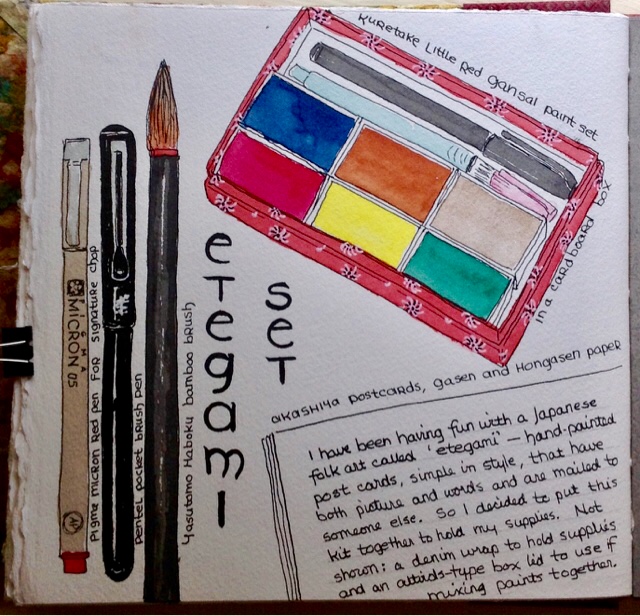 Kuretake Little Red gansai paint set
in a cardboard box
PIGMA
MICRON 05
Pigma micron Red pen for signature chop
Pentel pocket brush pen
Yasutomo Haboku bamboo brush
etegami
set
akashiya postcards, gasen and Hongasen paper
I have been having fun with a Japanese
folk art called 'etegami' — hand-painted
post cards, simple in style, that have
both picture and words and are mailed to
someone else. So I decided to put this
kit together to hold my supplies. Not
shown: a denim wrap to hold supplies
and an altoids-type box lid to use if
mixing paints together.